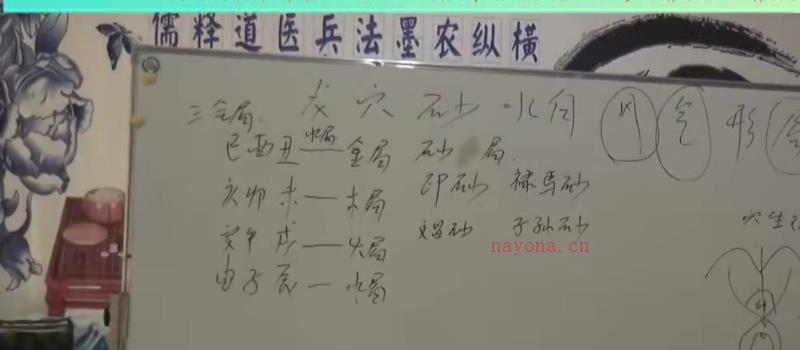 儒释道医兵法墨农纵横
三合局 龙穴砂水向 风气形
巳酉丑—金局 砂局
水局
亥卯未—木局 印砂 禄马砂
寅午戌—火局 文昌砂 子孙砂
申子辰—水局
穴生
nayona.cn